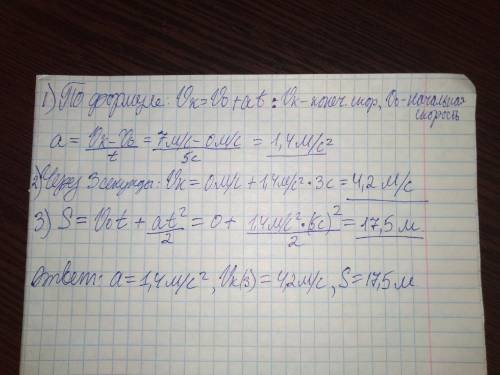 1) По формуле: Vк=V₀+at: Vк-конеч. скор, V₀-начальная скорость
a = (Vк-V₀)/t = (7м/с-0м/с)/5с = 1,4м/с²
2) Через 3 секунды: Vк=0м/с+1,4м/с²·3с=4,2 м/с
3) S = V₀t + at²/2 = 0+ 1,4м/с²·(5с)²/2 = 17,5 м
Ответ: a=1,4м/с², Vк(3)=4,2м/с, S=17,5м